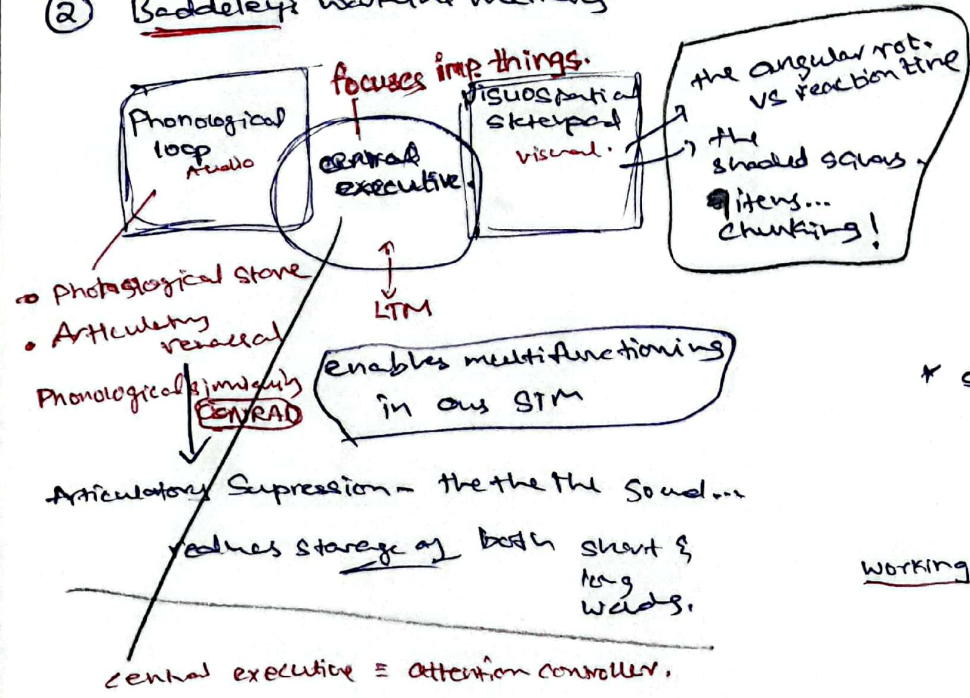 ② Baddeley's working memory
focuses imp. things.
Phonological
loop
Audio
central
executive
Visuospatial
sketchpad
visual.
the angular rot.
vs reaction time
the
shaded squares.
9 items...
chunking!
LTM
• Phonological store
• Articulatory
rehearsal
Phonological similarity
CONRAD
enables multifunctioning
in our STM
Articulatory Supression - the the the sound...
reduces storage of both short &
long
words.
working
central executive = attention controller.